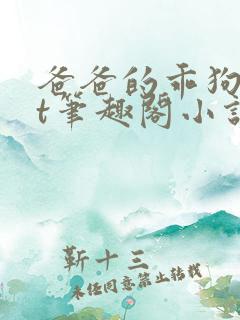 爸爸的乖狗
t筆趣閣小說
靳十三
未经同意禁止转载